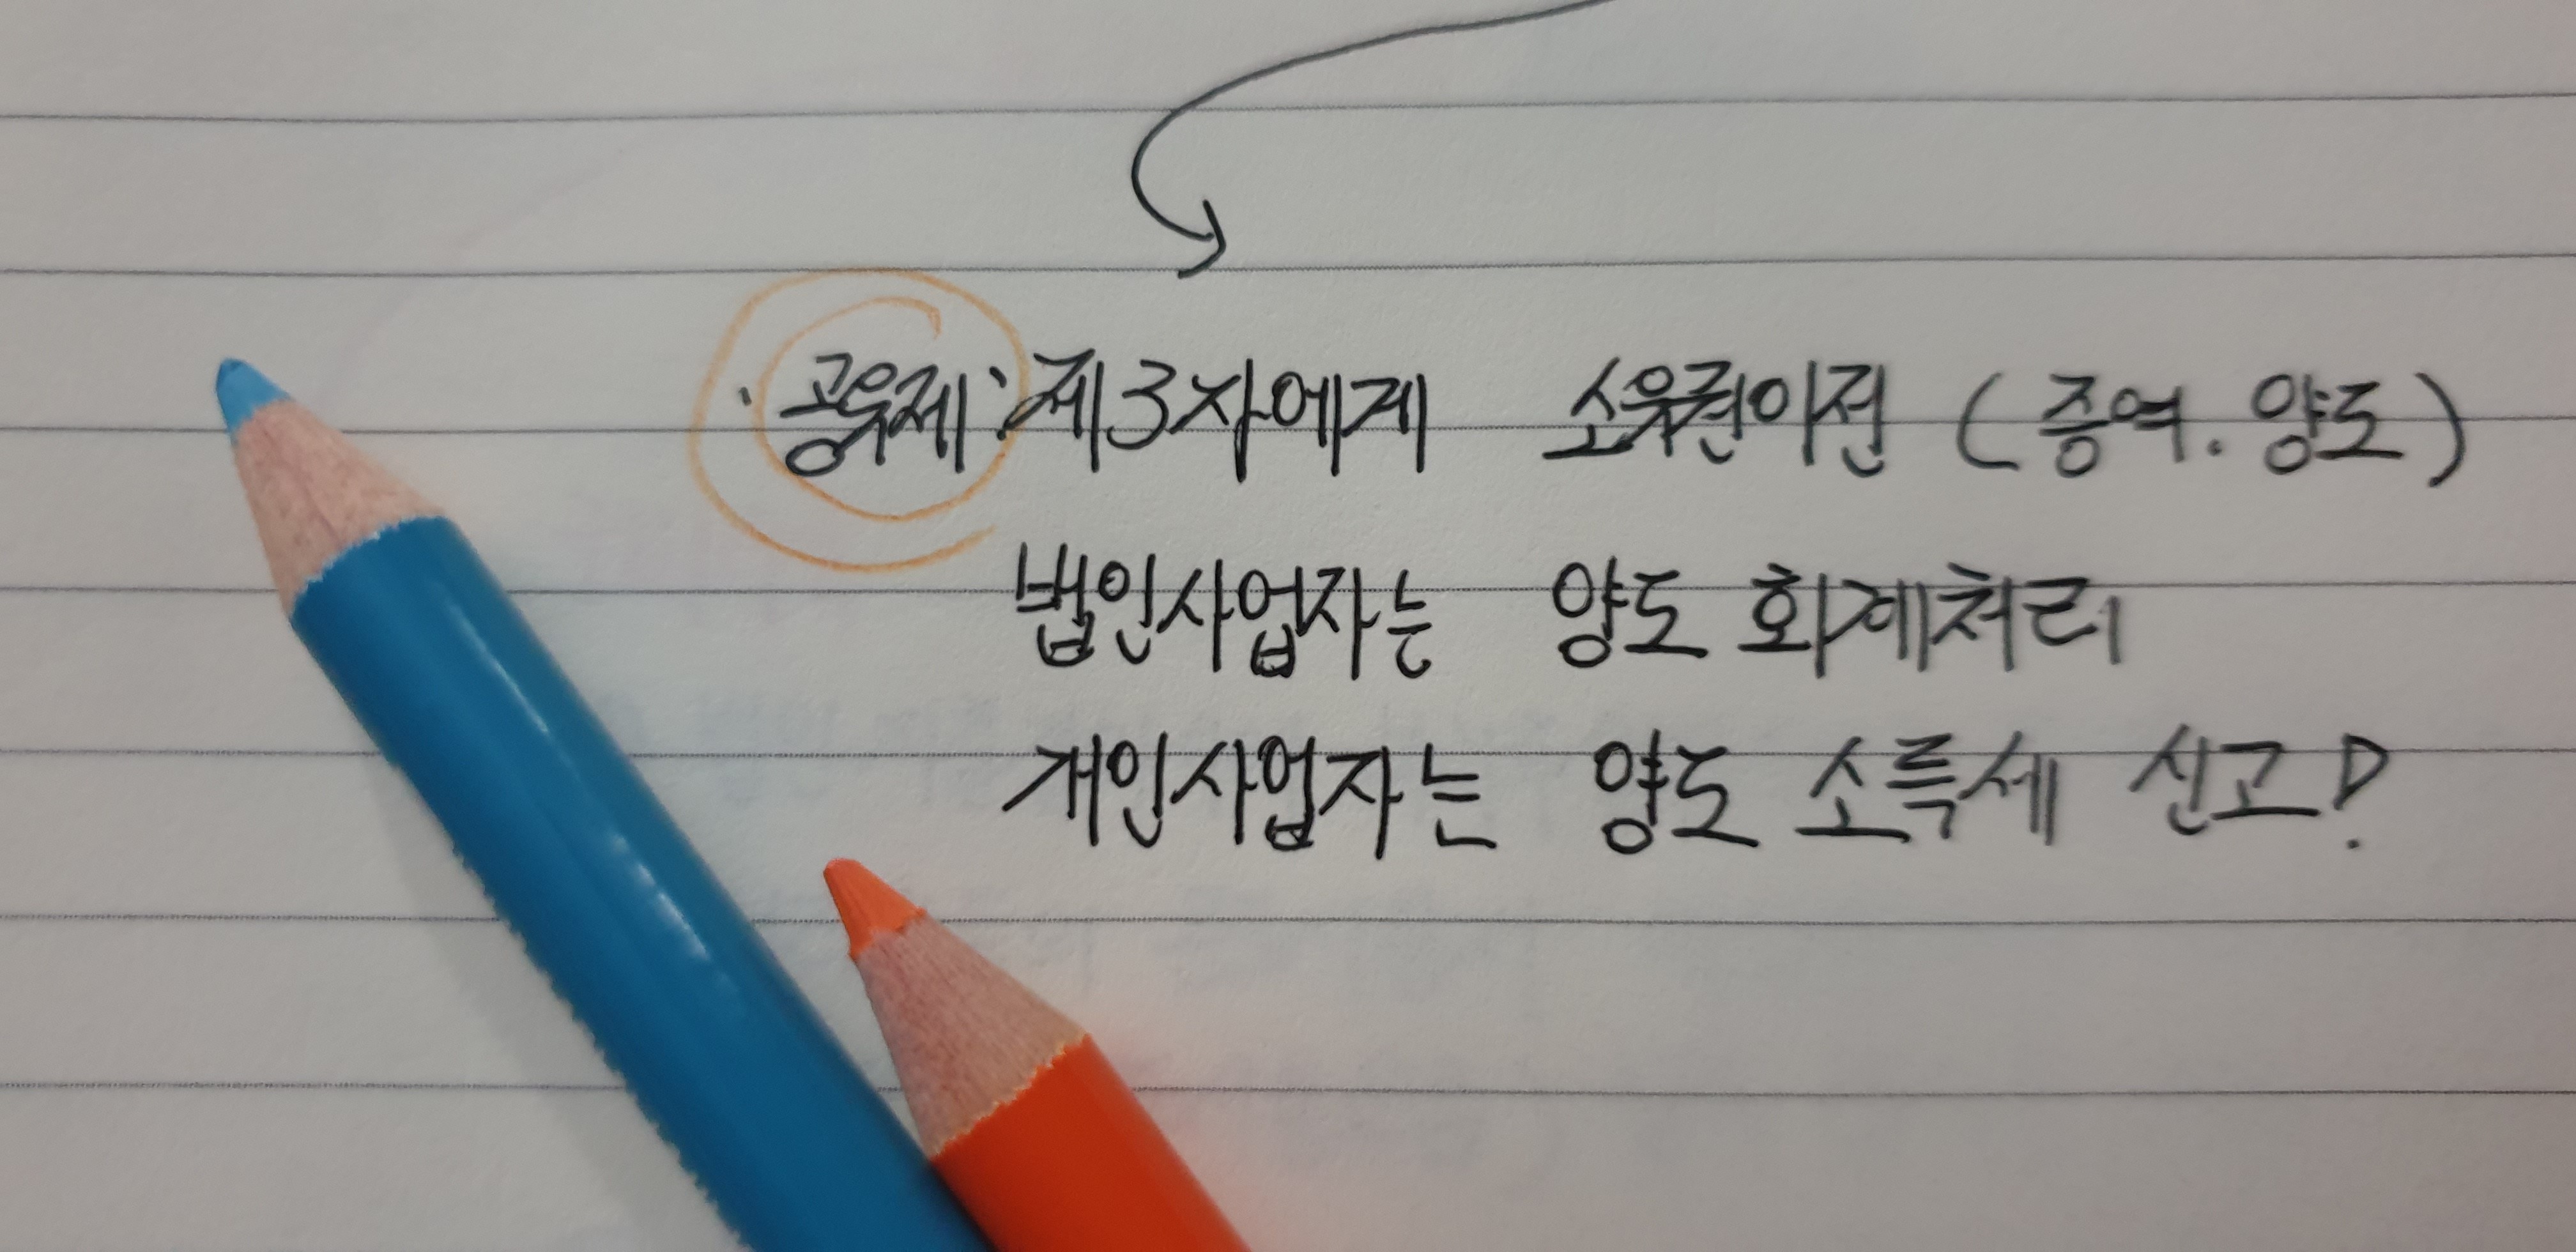 · 공유제 : 제3자에게 소유권이전 (증여. 양도)
법인사업자는 양도 회계처리
개인사업자는 양도 소득세 신고!